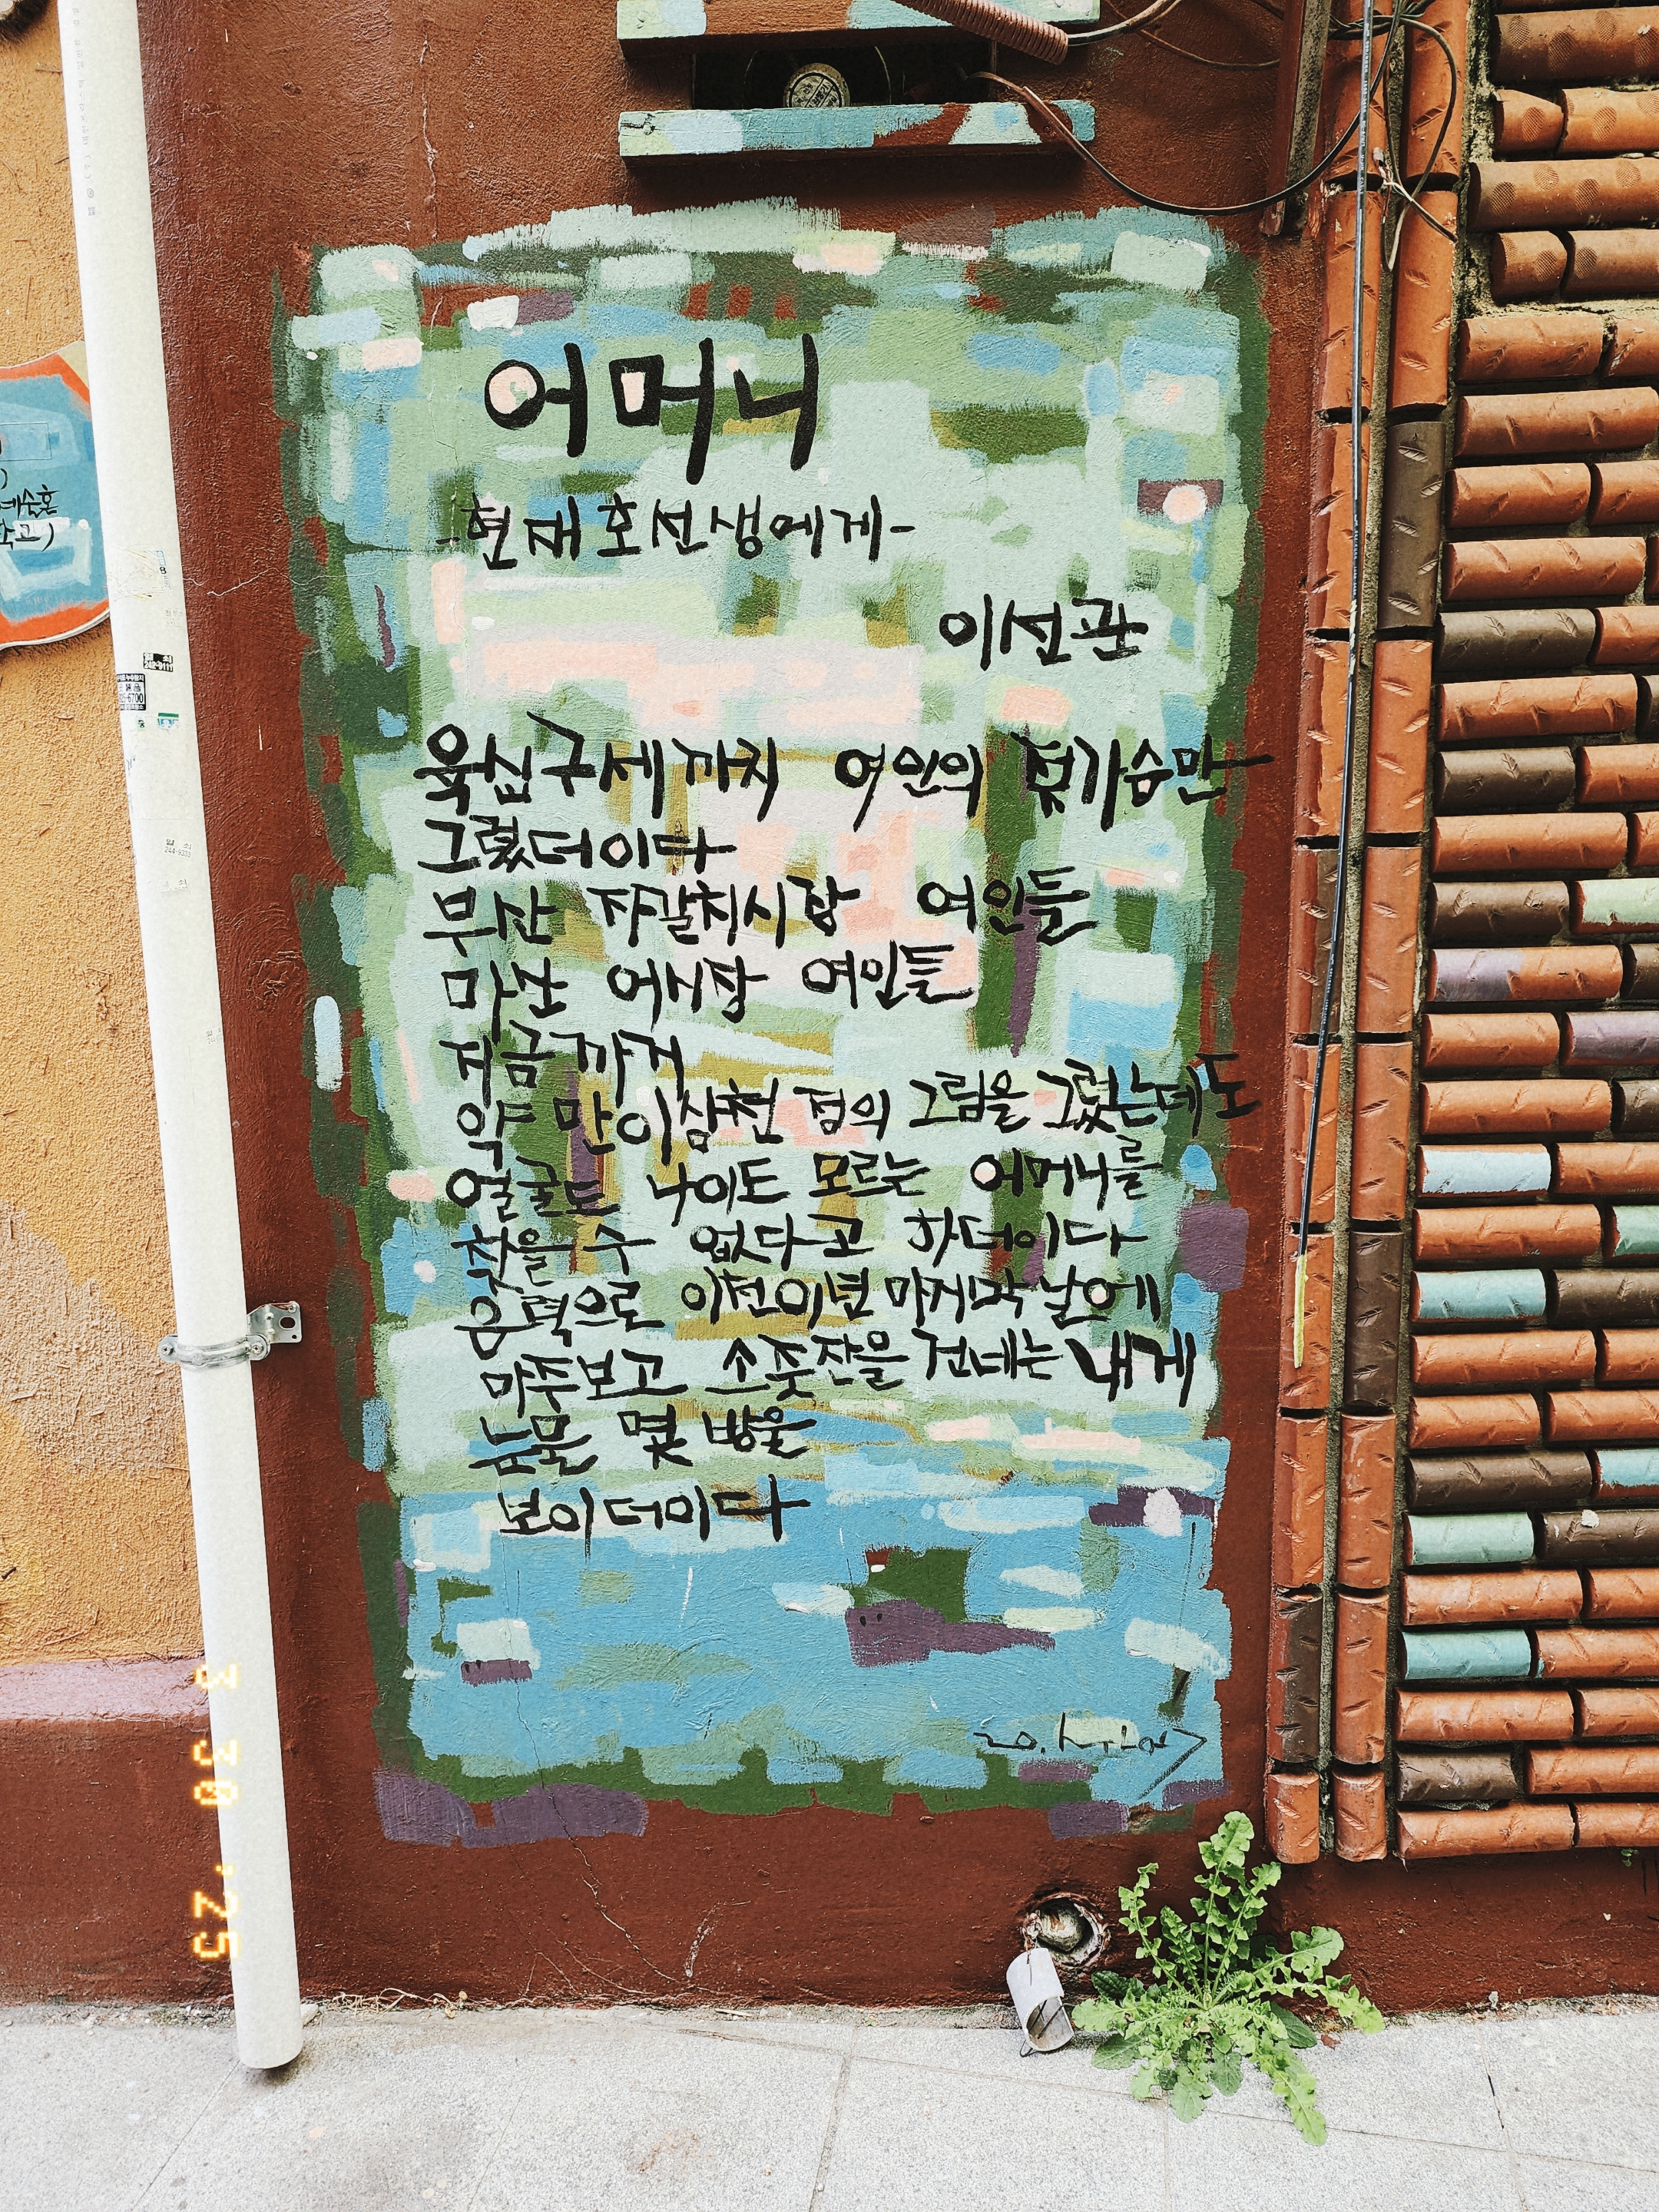 어머니
-현재호선생에게-
이선관
육십구세까지 여인의 젖가슴만
그렸더이다
부산 자갈치시장 여인들
마산 어시장 여인들
지금까지
약 만이삼천 점의 그림을 그렸는데도
얼굴도 나이도 모르는 어머니를
찾을 수 없다고 하더이다
음력으로 이천이년 마지막 날에
마주보고 소줏잔을 건네는 내게
눈물 몇 방울
보이더이다
3 30 '25